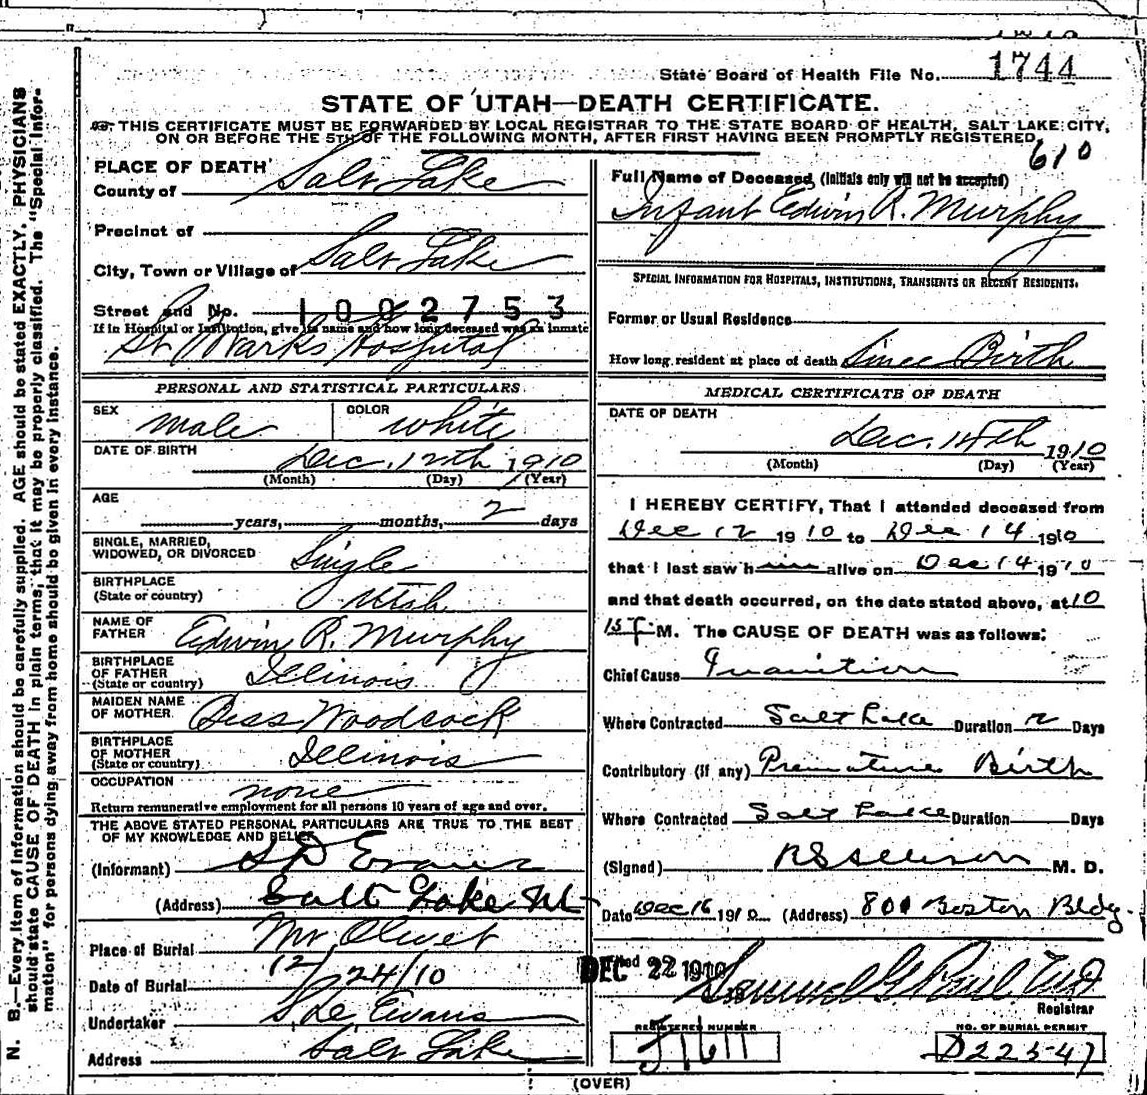 1744
State Board of Health File No.
STATE OF UTAH—DEATH CERTIFICATE.
THIS CERTIFICATE MUST BE FORWARDED BY LOCAL REGISTRAR TO THE STATE BOARD OF HEALTH, SALT LAKE CITY,
ON OR BEFORE THE 5TH OF THE FOLLOWING MONTH, AFTER FIRST HAVING BEEN PROMPTLY REGISTERED.
610
PLACE OF DEATH
County of Salt Lake
Precinct of
City, Town or Village of Salt Lake
Street and No. 1002753
If in Hospital or Institution, give its name and how long deceased was an inmate
St Marks Hospital
PERSONAL AND STATISTICAL PARTICULARS
SEX male COLOR white
DATE OF BIRTH Dec. 12th 1910
(Month) (Day) (Year)
AGE years, months, 2 days
SINGLE, MARRIED,
WIDOWED, OR DIVORCED Single
BIRTHPLACE
(State or country) Utah
NAME OF
FATHER Edwin R. Murphy
BIRTHPLACE
OF FATHER
(State or country) Illinois
MAIDEN NAME
OF MOTHER Bess Woodcock
BIRTHPLACE
OF MOTHER
(State or country) Illinois
OCCUPATION none
Return remunerative employment for all persons 10 years of age and over.
THE ABOVE STATED PERSONAL PARTICULARS ARE TRUE TO THE BEST
OF MY KNOWLEDGE AND BELIEF
(Informant) S D Evans
(Address) Salt Lake Ut
Place of Burial Mt Olivet
Date of Burial 12/24/10
Undertaker S D Evans
Address Salt Lake
Full Name of Deceased (Initials only will not be accepted)
Infant Edwin R. Murphy
SPECIAL INFORMATION FOR HOSPITALS, INSTITUTIONS, TRANSIENTS OR RECENT RESIDENTS.
Former or Usual Residence
How long resident at place of death Since Birth
MEDICAL CERTIFICATE OF DEATH
DATE OF DEATH
Dec. 14th 1910
(Month) (Day) (Year)
I HEREBY CERTIFY, That I attended deceased from
Dec 12 1910 to Dec 14 1910
that I last saw him alive on Dec 14 1910
and that death occurred, on the date stated above, at 10
15 P M. The CAUSE OF DEATH was as follows:
Chief Cause Inanition
Where Contracted Salt Lake Duration 2 Days
Contributory (if any) Premature Birth
Where Contracted Salt Lake Duration Days
(Signed) M. D.
Date Dec 16 1910 (Address) 801 Boston Bldg
DEC 22 1910 Samuel G Paul M D
Registrar
REGISTERED NUMBER
NO. OF BURIAL PERMIT
D22547
(OVER)
N. B.—Every item of information should be carefully supplied. AGE should be stated EXACTLY. PHYSICIANS
should state CAUSE OF DEATH in plain terms, that it may be properly classified. The "Special Infor-
mation" for persons dying away from home should be given in every instance.